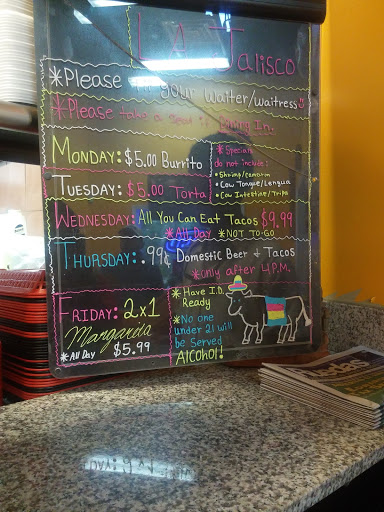 Jalisco
*Please tip your waiter/waitress
*Please take a seat if Dining In.
MONDAY: $5.00 Burrito
TUESDAY: $5.00 Torta
*Specials
do not include:
•Shrimp/camaron
•Cow Tongue/Lengua
•Cow Intestine/Tripa
WEDNESDAY: All You Can Eat Tacos $9.99
*All Day *NOT TO-GO
THURSDAY: .99¢ Domestic Beer & Tacos
*only after 4 P.M.
FRIDAY: 2x1
Margarita
*All Day $5.99
*Have I.D.
Ready
*No one
under 21 will
be Served
Alcohol!